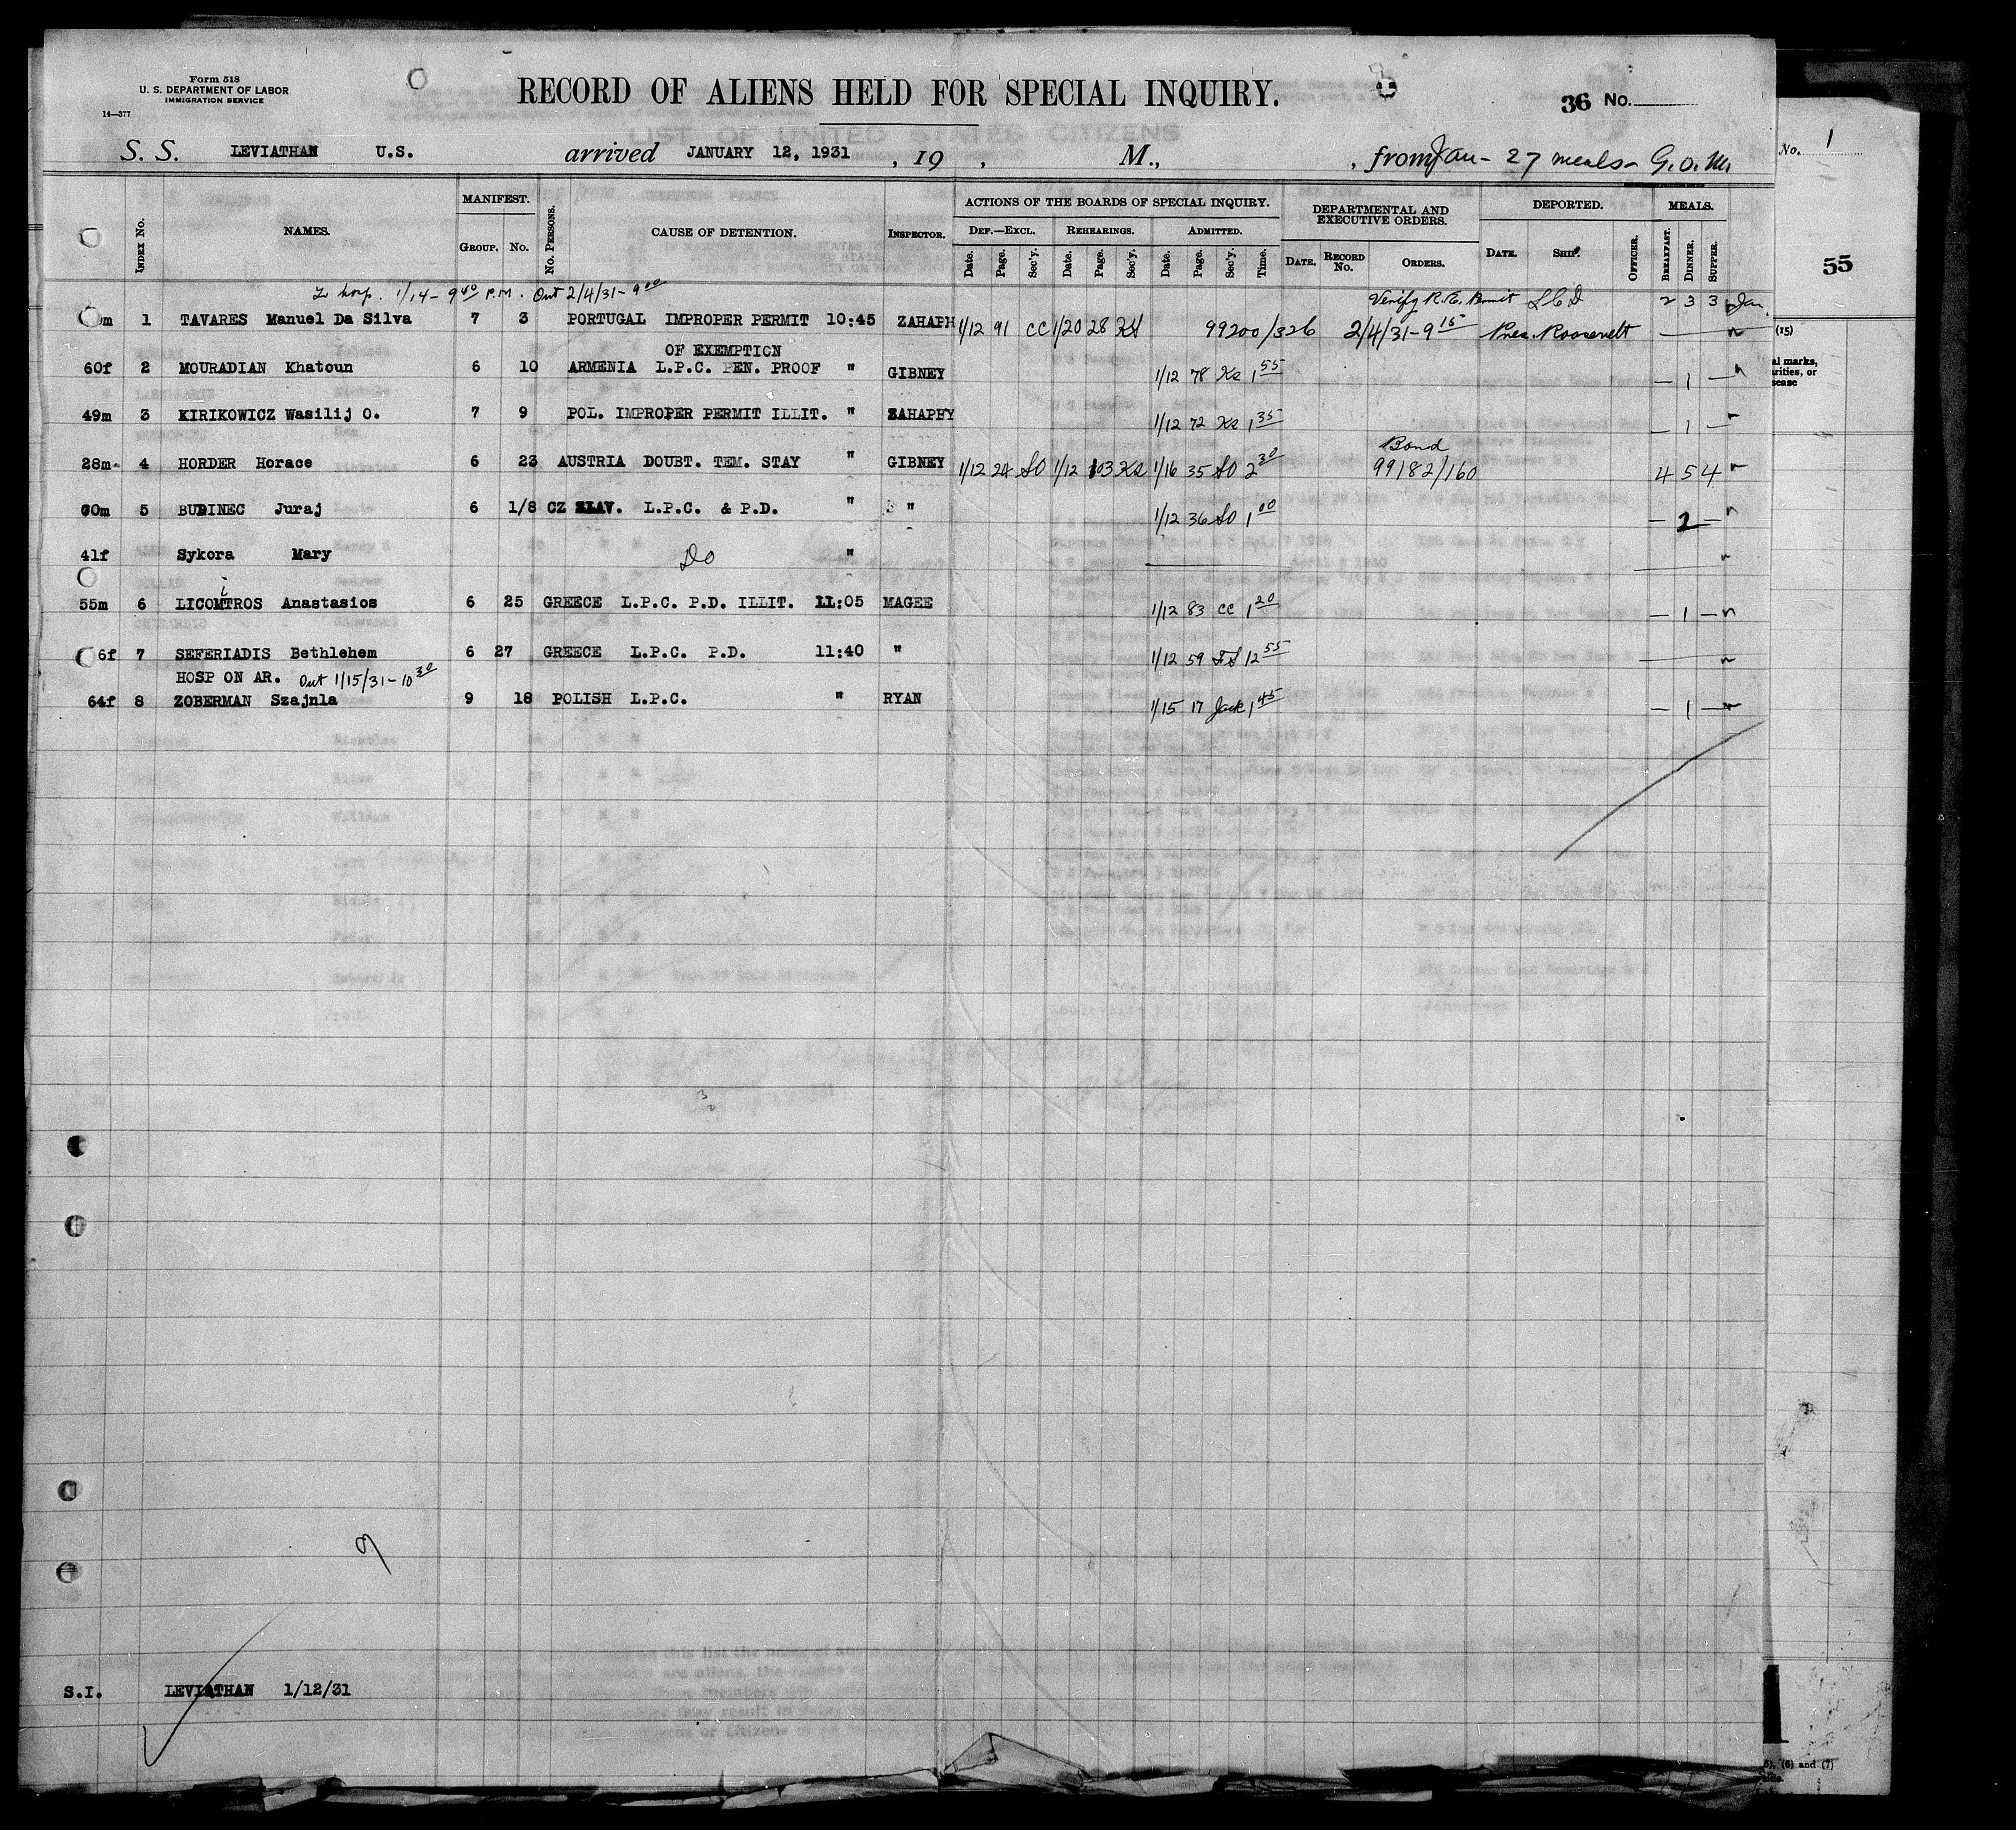 Form 518
U. S. DEPARTMENT OF LABOR
IMMIGRATION SERVICE
14—377
RECORD OF ALIENS HELD FOR SPECIAL INQUIRY.
36 No.
S. S. LEVIATHAN U.S. arrived JANUARY 12, 1931 , 19 , M., , from Jan - 27 meals - G.O.M.
No. 1
55
INDEX No. NAMES. MANIFEST. GROUP. No. No. PERSONS. CAUSE OF DETENTION. INSPECTOR. ACTIONS OF THE BOARDS OF SPECIAL INQUIRY. DEPARTMENTAL AND EXECUTIVE ORDERS. DEPORTED. MEALS.
DEF.—EXCL. REHEARINGS. ADMITTED.
Date. Page. Sec'y. Date. Page. Sec'y. Date. Page. Sec'y. Time. DATE. RECORD No. ORDERS. DATE. SHIP. OFFICER. BREAKFAST. DINNER. SUPPER.
To hosp. 1/14 - 9 40 P.M. Out 2/4/31 - 9 00 Verify R.E. Permit 2 3 3 Jan.
m 1 TAVARES Manuel Da Silva 7 3 PORTUGAL IMPROPER PERMIT 10:45 ZAHAPH 1/12 91 CC 1/20 28 99200/326 2/4/31-9 15 Pres. Roosevelt
OF EXEMPTION
60f 2 MOURADIAN Khatoun 6 10 ARMENIA L.P.C. PEN. PROOF " GIBNEY 1/12 78 Ks 1 55 — 1 —
49m 3 KIRIKOWICZ Wasilij O. 7 9 POL. IMPROPER PERMIT ILLIT. " ZAHAPHY 1/12 72 Ks 1 35 — 1 —
Bond
28m 4 HORDER Horace 6 23 AUSTRIA DOUBT. TEM. STAY " GIBNEY 1/12 24 SO 1/12 103 Ks 1/16 35 SO 2 30 99182/160 4 5 4 "
70m 5 BUDINEC Juraj 6 1/8 CZ SLAV. L.P.C. & P.D. " " 1/12 36 SO 1 00 — 2 — "
41f Sykora Mary Do " "
i
55m 6 LICOMTROS Anastasios 6 25 GREECE L.P.C. P.D. ILLIT. 11:05 MAGEE 1/12 83 CC 1 20 — 1 — "
6f 7 SEFERIADIS Bethlehem 6 27 GREECE L.P.C. P.D. 11:40 " 1/12 59 12 55 "
HOSP ON AR. Out 1/15/31-10 30
64f 8 ZOBERMAN Szajnla 9 18 POLISH L.P.C. " RYAN 1/15 17 Jack 1 45 — 1 — "
(15)
al marks,
rities, or
sease
9
S.I. LEVIATHAN 1/12/31
(6) and (7)